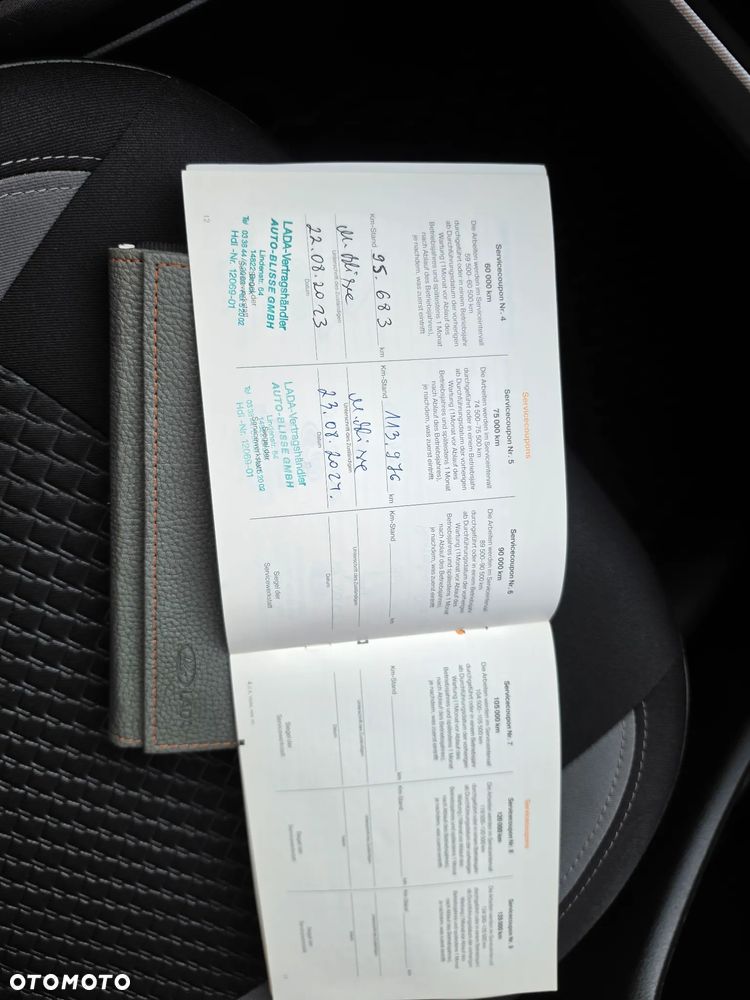 Servicecoupons
Servicecoupon Nr. 4
60 000 km
Die Arbeiten werden im Serviceintervall
59 500–60 500 km
durchgeführt oder in einem Betriebsjahr
ab Durchführungsdatum der vorherigen
Wartung (1 Monat vor Ablauf des
Betriebsjahres und spätestens 1 Monat
nach Ablauf des Betriebsjahres),
je nachdem, was zuerst eintrifft
Km-Stand 95.683 km
Unterschrift des Zuständigen
22.08.2023
Datum
LADA-Vertragshändler
AUTO-BLISSE GMBH
Lindenstr. 64
Hdl -Nr. 12069-01
12
Servicecoupon Nr. 5
75 000 km
Die Arbeiten werden im Serviceintervall
74 500–75 500 km
durchgeführt oder in einem Betriebsjahr
ab Durchführungsdatum der vorherigen
Wartung (1 Monat vor Ablauf des
Betriebsjahres und spätestens 1 Monat
nach Ablauf des Betriebsjahres),
je nachdem, was zuerst eintrifft
Km-Stand 113.976 km
Unterschrift des Zuständigen
23.08.2024.
Datum
LADA-Vertragshändler
AUTO-BLISSE GMBH
Lindenstr. 64
Siegel der
Servicewerkstatt
Hdl -Nr. 12069-01
Servicecoupon Nr. 6
90 000 km
Die Arbeiten werden im Serviceintervall
89 500–90 500 km
durchgeführt oder in einem Betriebsjahr
ab Durchführungsdatum der vorherigen
Wartung (1 Monat vor Ablauf des
Betriebsjahres und spätestens 1 Monat
nach Ablauf des Betriebsjahres),
je nachdem, was zuerst eintrifft
Km-Stand km
Unterschrift des Zuständigen
Datum
Siegel der
Servicewerkstatt
Servicecoupons
Servicecoupon Nr. 7
105 000 km
Die Arbeiten werden im Serviceintervall
104 500–105 500 km
durchgeführt oder in einem Betriebsjahr
ab Durchführungsdatum der vorherigen
Wartung (1 Monat vor Ablauf des
Betriebsjahres und spätestens 1 Monat
nach Ablauf des Betriebsjahres),
je nachdem, was zuerst eintrifft
Km-Stand km
Unterschrift des Zuständigen
Datum
Siegel der
Servicewerkstatt
Servicecoupon Nr. 8
120 000 km
Die Arbeiten werden im Serviceintervall
durchgeführt oder in einem Betriebsjahr
ab Durchführungsdatum der vorherigen
Km-Stand km
Datum
Siegel der
Servicewerkstatt
Servicecoupon Nr. 9
135 000 km
Die Arbeiten werden im Serviceintervall
durchgeführt oder in einem Betriebsjahr
ab Durchführungsdatum der vorherigen
Km-Stand km
Datum
Siegel der
Servicewerkstatt
OTOMOTO